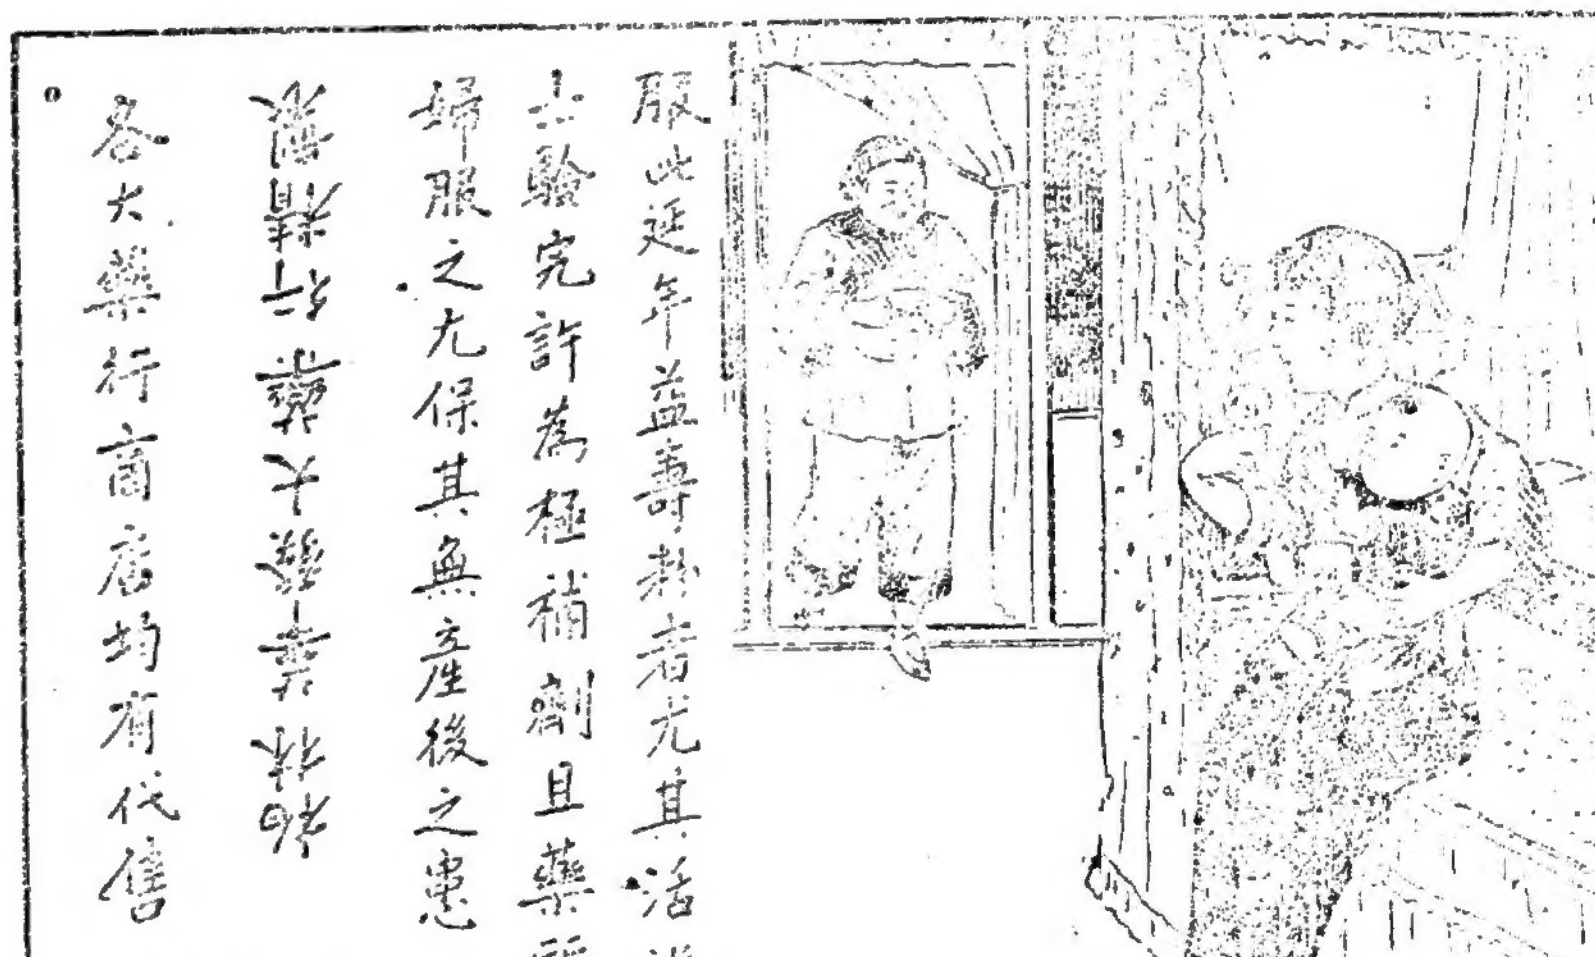 服此延年益壽者尤其活
士驗究許為極補劑且藥
婦服之尤保其無產後之患
大藥行
各大藥行商店均有代售